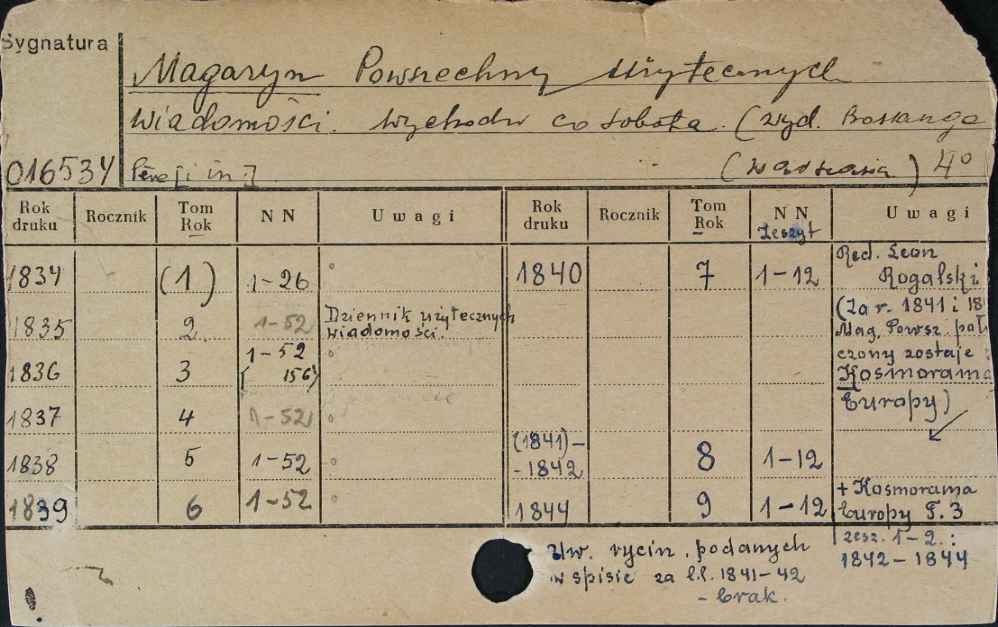 Sygnatura
Magazyn Powszechny Użytecznych
Wiadomości. Wychodzi co sobota. (wyd. Bossange
016534 Père [i in.] (Warszawa) 4°
Rok druku Rocznik Tom Rok NN Uwagi Rok druku Rocznik Tom Rok NN Zeszyt Uwagi
1834 (1) 1-26
1835 2 1-52 Dziennik użytecznych
wiadomości.
1836 3 1-52
( 156)
1837 4 1-52
1838 5 1-52
1839 6 1-52
1840 7 1-12 Red. Leon
Rogalski
(Za r. 1841 i 18
Mag. Powsz. połą
czony zostaje
Kosmorama
Europy)
(1841)-
-1842 8 1-12
1844 9 1-12 + Kosmorama
Europy T. 3
zesz. 1-2.:
1842-1844
Uw. rycin podanych
w spisie za l.l. 1841-42
- brak.